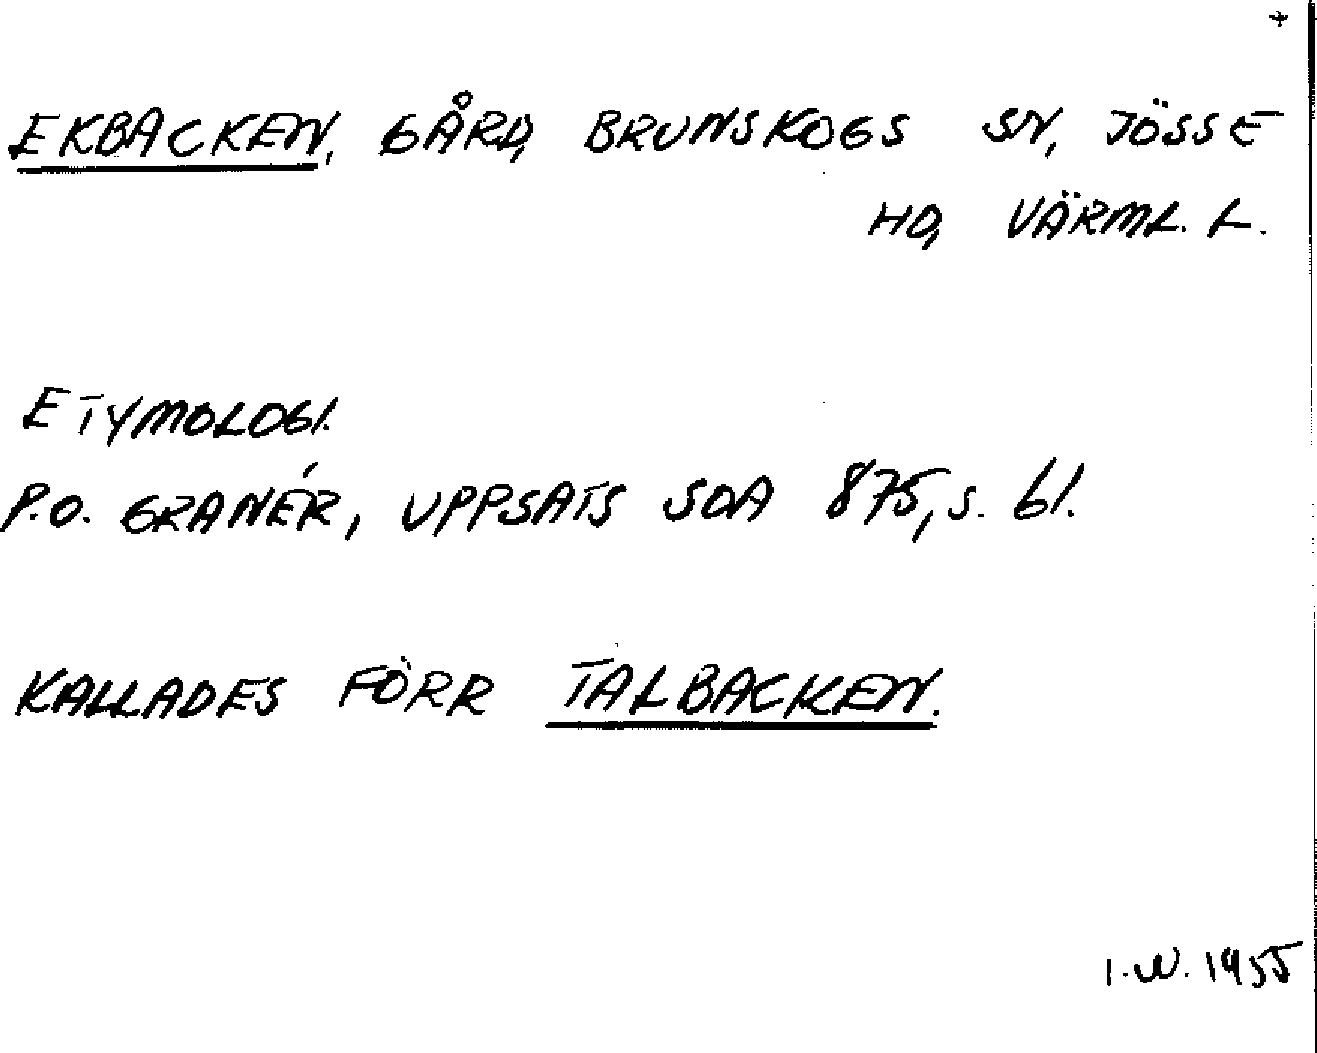 +
EKBACKEN, GÅRD, BRUNSKOGS SN, JÖSSE
HD, VÄRML. L.
ETYMOLOGI.
P.O. GRANÉR, UPPSATS SOA 875, s. 61.
KALLADES FÖRR TALBACKEN.
I.W. 1955